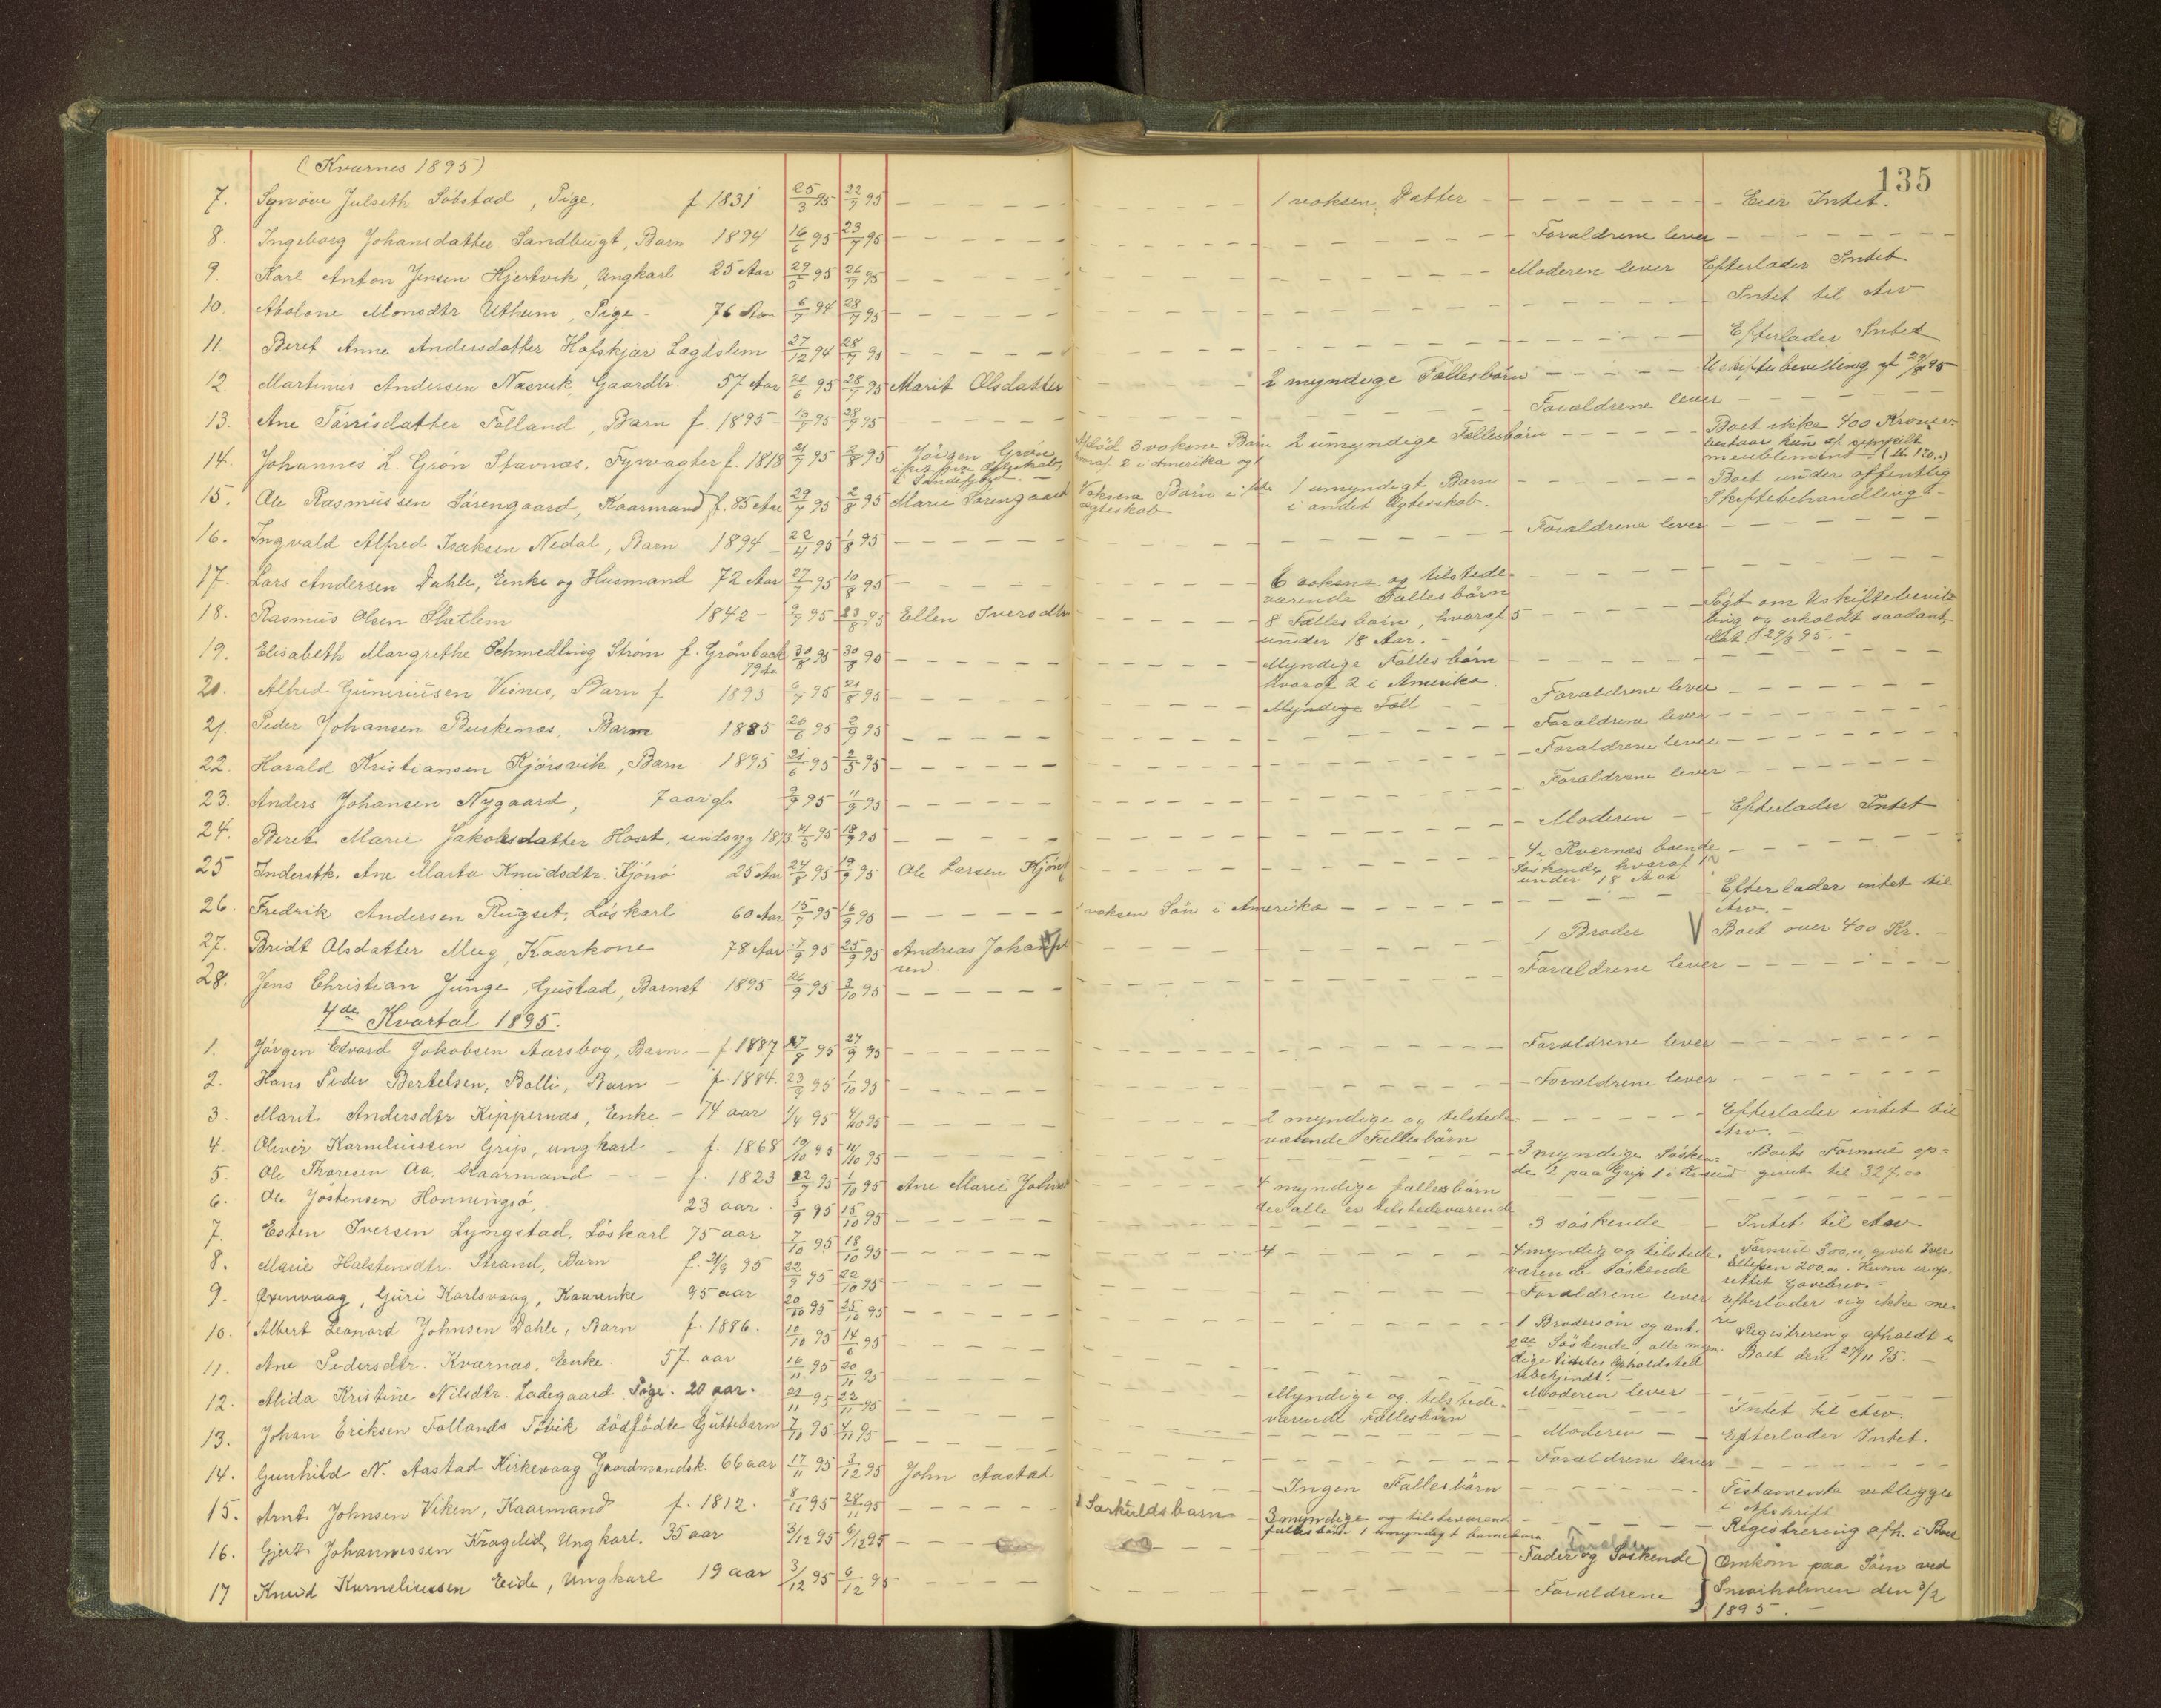 (Kvarnes 1895)
135
7. Synöve Julseth Söbstad, Pige. f 1831 25/3 95 22/7 95 1 voksen Datter Eier Intet.
8. Ingeborg Johansdatter Sandbugt, Barn 1894 16/6 95 23/7 95 Foraldrene lever
9. Karl Anton Jensen Hjertvik, Ungkarl 25 Aar 29/5 95 26/7 95 Moderen lever Efterlader Intet
10. Abolone Monsdtr Utheim, Pige - 76 Aar 6/7 94 28/7 95 Intet til Arv
11. Beret Anne Andersdatter Hafskjær Lagdslem 27/12 94 28/7 95 Efterlader Intet
12. Martinus Andersen Næsvik, Gaardbr 57 Aar 21/6 95 28/7 95 Marit Olsdatter 2 myndige Fællesbörn Uskiftebevilling af 29/8 95
13. Ane Törrisdatter Folland, Barn f. 1895 - 13/7 95 28/7 95 Foraldrene lever
14. Johannes L. Grön Stavnæs, Fyrvagter f. 1818 21/7 95 2/8 95 Jörgen Grön
i Sandefjord. -
3 voksne Börn
hvoraf 2 i Amerika og 1
2 umyndige Fællesbörn
Boet ikke 400 Kroner
bestaar kun af
meublement (ca 120.-)
15. Ole Rasmussen Sörengaard, Kaarmand f. 85 Aar 29/7 95 2/8 95 Marie Sörengaard
Voksne Börn i förste
ægteskab
1 umyndigt Barn
i andet Ægteskab.
Boet under offentlig
Skiftebehandling. -
16. Ingvald Alfred Isaksen Nedal, Barn 1894 22/4 95 1/8 95 Foraldrene lever
17. Lars Andersen Dahle, Enke og Husmand 72 Aar 27/7 95 10/8 95 6 voksne og tilstede-
værende Fællesbörn
18. Rasmus Olsen Slatlem 1842 - 9/7 95 23/8 95 Ellen Iversdtr 8 Fælles börn, hvoraf 5
under 18 Aar. -
Sögt om Uskiftebevil-
ling og erholdt saadant,
dat. 29/8 95. -
19. Elisabeth Margrethe Schmedling Ström f. Grönbæck
79 Aar
30/8 95 30/8 95 Myndige Fælles börn
hvoraf 2 i Amerika.
20. Alfred Guneriusen Visnes, Barn f 1895 6/7 95 21/8 95 Myndige Fæll Foraldrene lever
21. Peder Johansen Buskenæs, Barn 1885 20/6 95 2/9 95 Foraldrene lever
22. Harald Kristiansen Kjörsvik, Barn 1895 21/6 95 2/5 95 Foraldrene lever
23. Anders Johansen Nygaard, 7 aarigl 9/9 95 11/9 95 Foraldrene lever
24. Beret Marie Jakobsdatter Hoset, sindsyg 1873 14/5 95 18/9 95 Moderen Efterlader Intet
25 Inderstk. Ane Marta Knudsdtr. Kjönö 25 Aar 24/8 95 19/9 95 Ole Larsen Kjönö 4 i Kvernæs boende
Söskende, hvoraf
under 18 Aar
26. Fredrik Andersen Rugset, Löskarl 60 Aar 15/7 95 16/9 95 1 voksen Sön i Amerika Efterlader intet til
Arv. -
27. Bridt Olsdatter Meeg, Kaarkone 78 Aar 7/9 95 25/9 95 Andreas Johan-
sen.
1 Broder V Boet over 400 Kr. -
28. Jens Christian Junge, Gustad, Barnet 1895 26/9 95 3/10 95 Foraldrene lever
4de Kvartal 1895.
1. Jörgen Edvard Jakobsen Aarsbog, Barn. - f 1887 27/8 95 27/9 95 Foraldrene lever
2. Hans Peder Bertelsen, Bolli, Barn - f. 1884. 23/9 95 1/10 95 Foraldrene lever
3. Marit Andersdtr Kippernæs, Enke - 74 aar 1/4 95 4/10 95 2 myndige og tilstede-
værende Fællesbörn
Efterlader intet til
Arv. -
4. Oliver Korneliussen Grip, ungkarl - f. 1868 10/10 95 11/10 95 3 myndige Sösken-
de, 2 paa Grip 1 i Kr.sund
Boets Formue op-
givet til 327,00
5. Ole Thoresen Aa, Kaarmand - - - f. 1823 22/7 95 1/10 95 Ane Marie Johns 4 myndige fællesbörn
der alle er tilstedeværende
6. Ole Jöstensen Honningsö, 23 aar. 3/9 95 15/10 95 3 söskende Intet til Arv
7. Esten Iversen Lyngstad, Löskarl 75 aar 7/10 95 18/10 95 4 4 myndig og tilstede-
værende Söskende
Formue 300,00, givet Iver
Ellefsen 200,00. Hvorom er op-
rettet Gavebrev. -
8. Marie Halstensdtr. Strand, Barn f. 21/9 95 22/9 95 22/10 95 Foraldrene lever
9. Oxenvaag, Guri Karlsvaag, Kaarenke 95 aar 20/10 95 25/10 95 1 Brodersön og ant.
2de Söskende, alle myn-
dige Opholdsted
ubekjendt. -
Efterlader sig ikke me-
re
Registrering afholdt i
Boet den 27/11 95. -
10. Albert Leonard Johnsen Dahle, Barn f. 1886. 10/10 95 14/6 95 Moderen lever
11. Ane Pedersdtr. Kvarnæs, Enke. 57 aar 16/11 95 20/11 95 Myndige og tilstede-
værende Fællesbörn
Intet til Arv.
12. Alida Kristine Nilsdtr. Ladegaard Pige. 20 aar. 21/11 95 22/11 95 Moderen Efterlader Intet.
13. Johan Eriksen Follands Tövik dödfödte Guttebarn 7/10 95 4/11 95 Foraldrene lever
14. Gunhild N. Aastad Kirkevaag Gaardmandsk. 66 aar 17/11 95 3/12 95 John Aastad Ingen Fællesbörn Testamente vedlegges
i Afskrift
15. Arnt Johnsen Viken, Kaarmand f. 1812. 8/11 95 28/11 95 1 Særkuldsbarn 3 myndige og tilstedeværende
fællesbörn 1 umyndigt barnebarn
Registrering afh. i Boet
16. Gjert Johannessen Kragelid, Ungkarl. 35 aar 3/12 95 6/12 95 Forældre
Fader og Söskende
17 Knud Korneliussen Eide, Ungkarl 19 aar 3/12 95 6/12 95 Foraldrene
Omkom paa Söen ved
Smörholmen den 3/2
1895. -